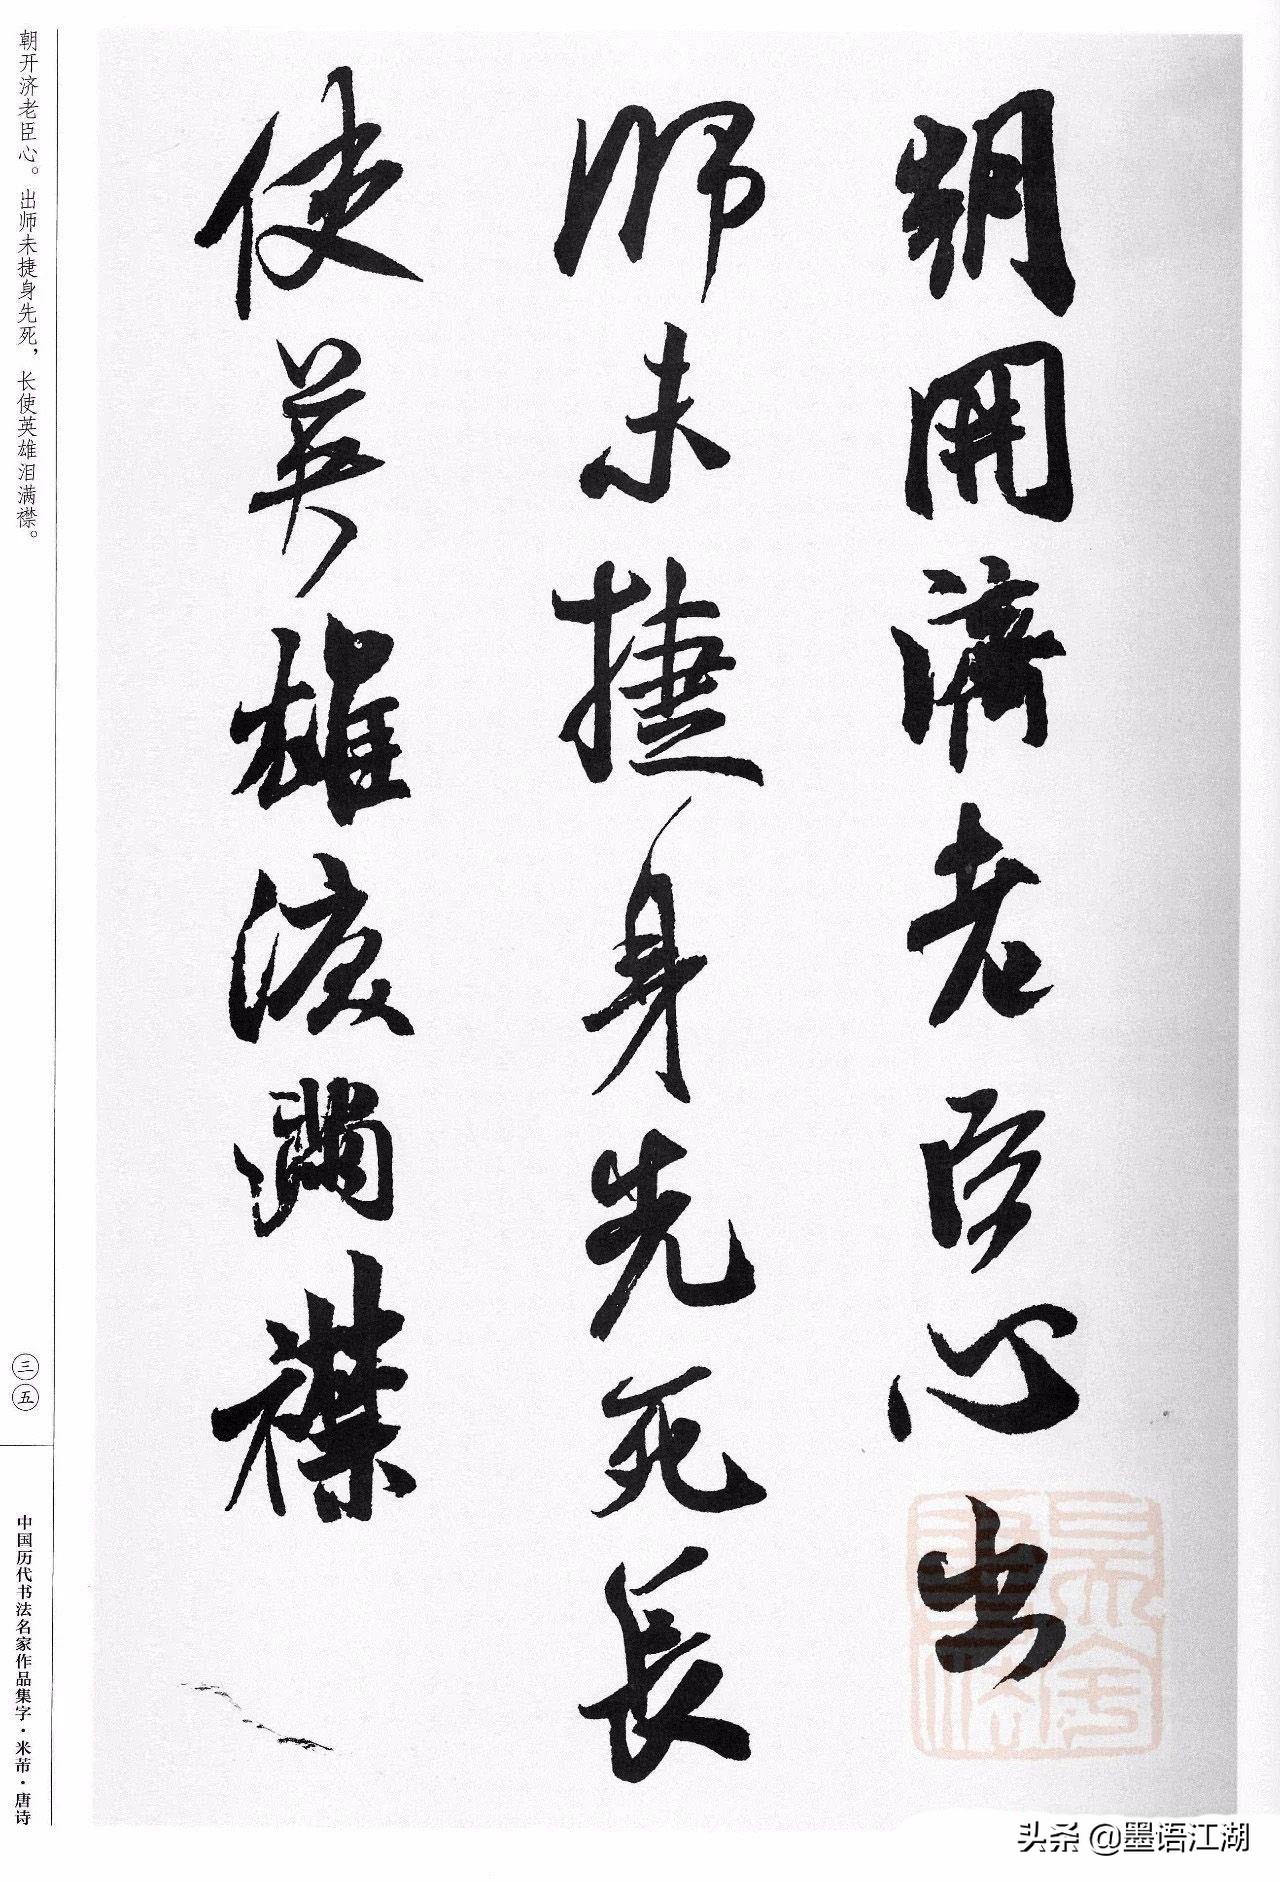 朝開濟老臣心出
師未捷身先死長
使英雄淚滿襟
朝开济老臣心。出师未捷身先死，长使英雄泪满襟。
三五
中国历代书法名家作品集字·米芾·唐诗
头条 @墨语江湖